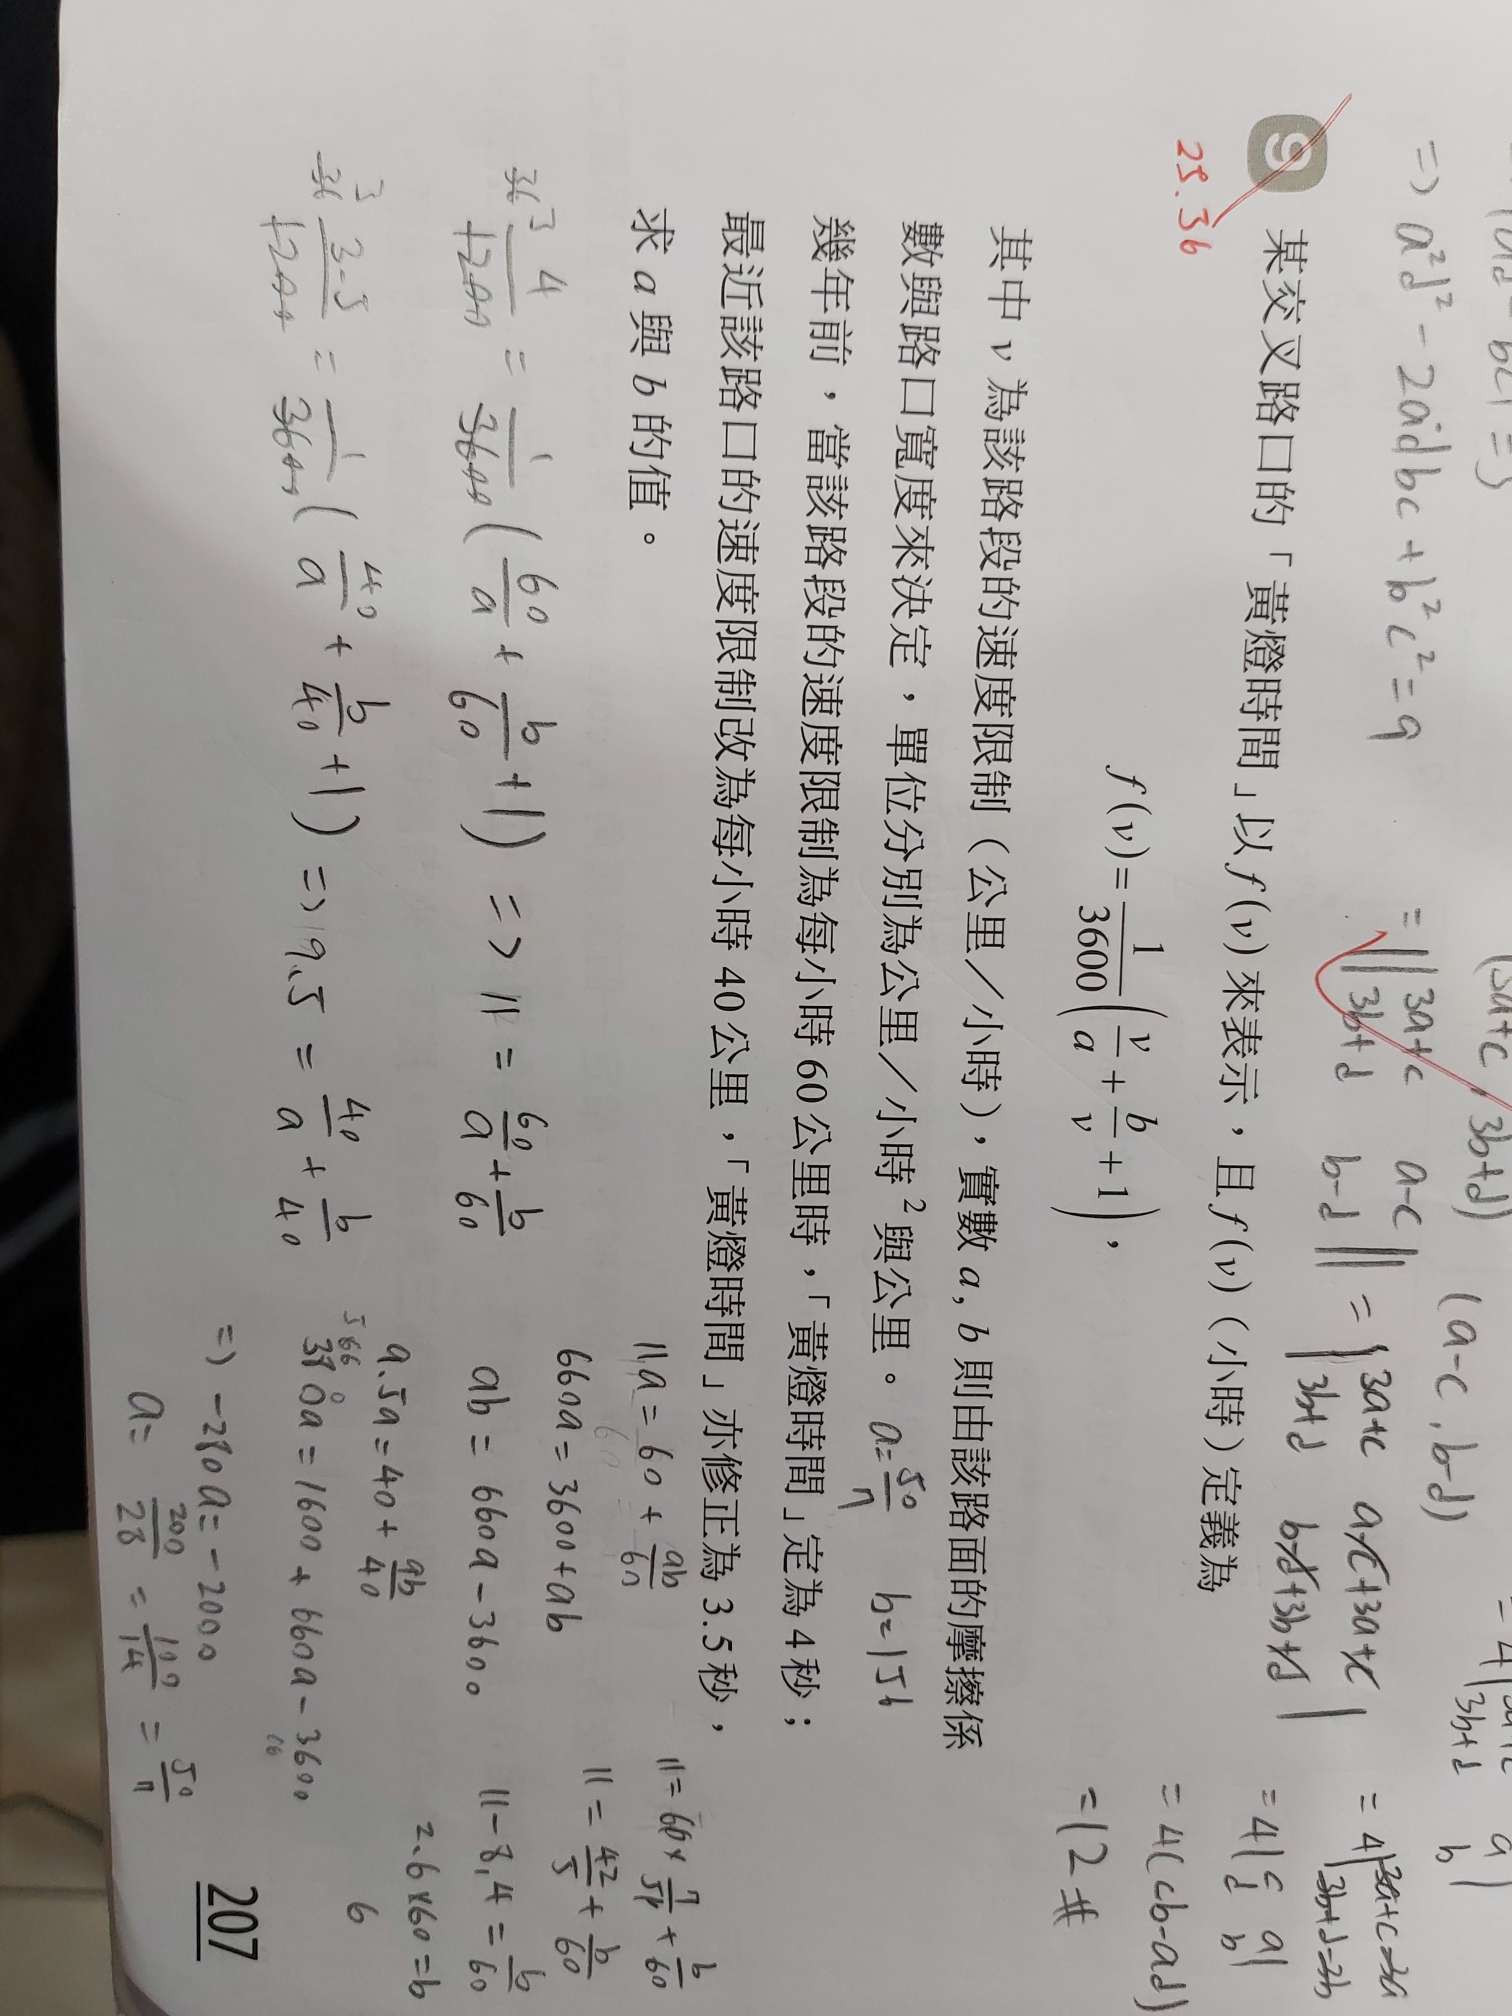 => a²d² - 2adbc + b²c² = 9
(3a+c, 3b+d)
(a-c, b-d)
= ||3a+c a-c
3b+d b-d|| = |3a+c a-c+3a+c
3b+d b-d+3b+d|
= 4|c a
d b|
= 4(cb-ad)
= 12 #
9 某交叉路口的「黃燈時間」以 f(v) 來表示，且 f(v)（小時）定義為
25.36
f(v) = 1/3600 (v/a + b/v + 1)，
其中 v 為該路段的速度限制（公里／小時），實數 a, b 則由該路面的摩擦係
數與路口寬度來決定，單位分別為公里／小時² 與公里。 a=50/7 b=156
幾年前，當該路段的速度限制為每小時 60 公里時，「黃燈時間」定為 4 秒；
最近該路口的速度限制改為每小時 40 公里，「黃燈時間」亦修正為 3.5 秒，
求 a 與 b 的值。
4/ = 1/3600 (60/a + b/60 + 1) => 11 = 60/a + b/60
3.5/ = 1/3600 (40/a + b/40 + 1) => 9.5 = 40/a + b/40
11a = 60 + ab/60
660a = 3600 + ab
ab = 660a - 3600
9.5a = 40 + ab/40
380a = 1600 + 660a - 3600
=> -280a = -2000
a = 200/28 = 100/14 = 50/7
11 = 42/5 + b/60
11 - 8.4 = b/60
2.6×60 = b
207